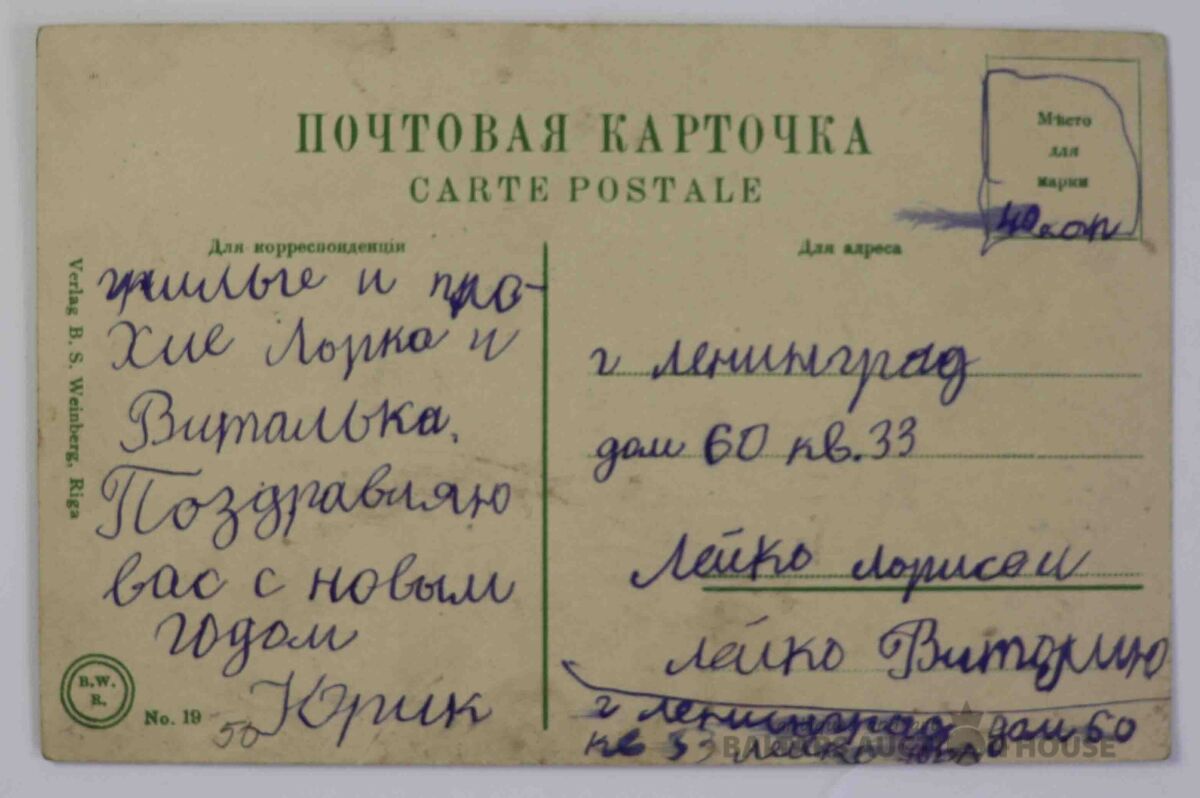 ПОЧТОВАЯ КАРТОЧКА
CARTE POSTALE
Мѣсто
для
марки
40 коп
Для корреспонденціи
Для адреса
Verlag B. S. Weinberg, Riga
милые и
хие Лорка и
Виталька.
Поздравляю
вас с новым
годом
Юрик
50
B.W.
R.
No. 19
г Ленинград
дом 60 кв. 33
Лейко Лорисе и
Лейко
г Ленинград дом 60
кв 33 Лейко
BALTIC AUCTION HOUSE